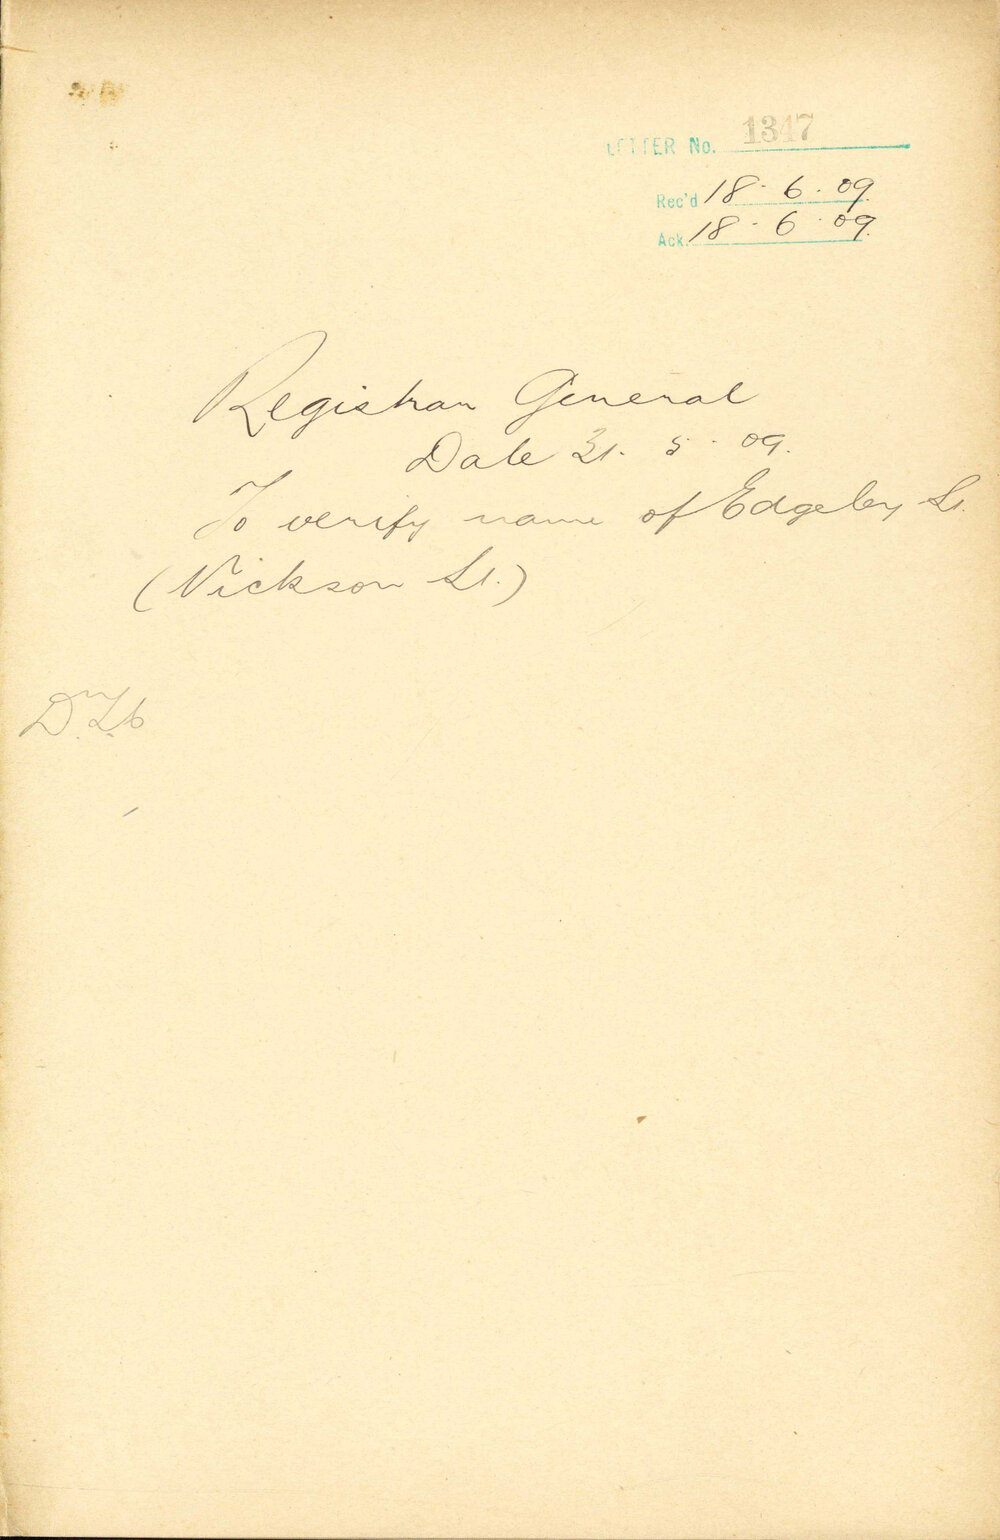 LETTER No. 1347
Rec'd 18. 6. 09.
Ack. 18. 6. 09.
Registrar General
Date 31. 5. 09.
To verify name of Edgeley St.
(Nickson St.)